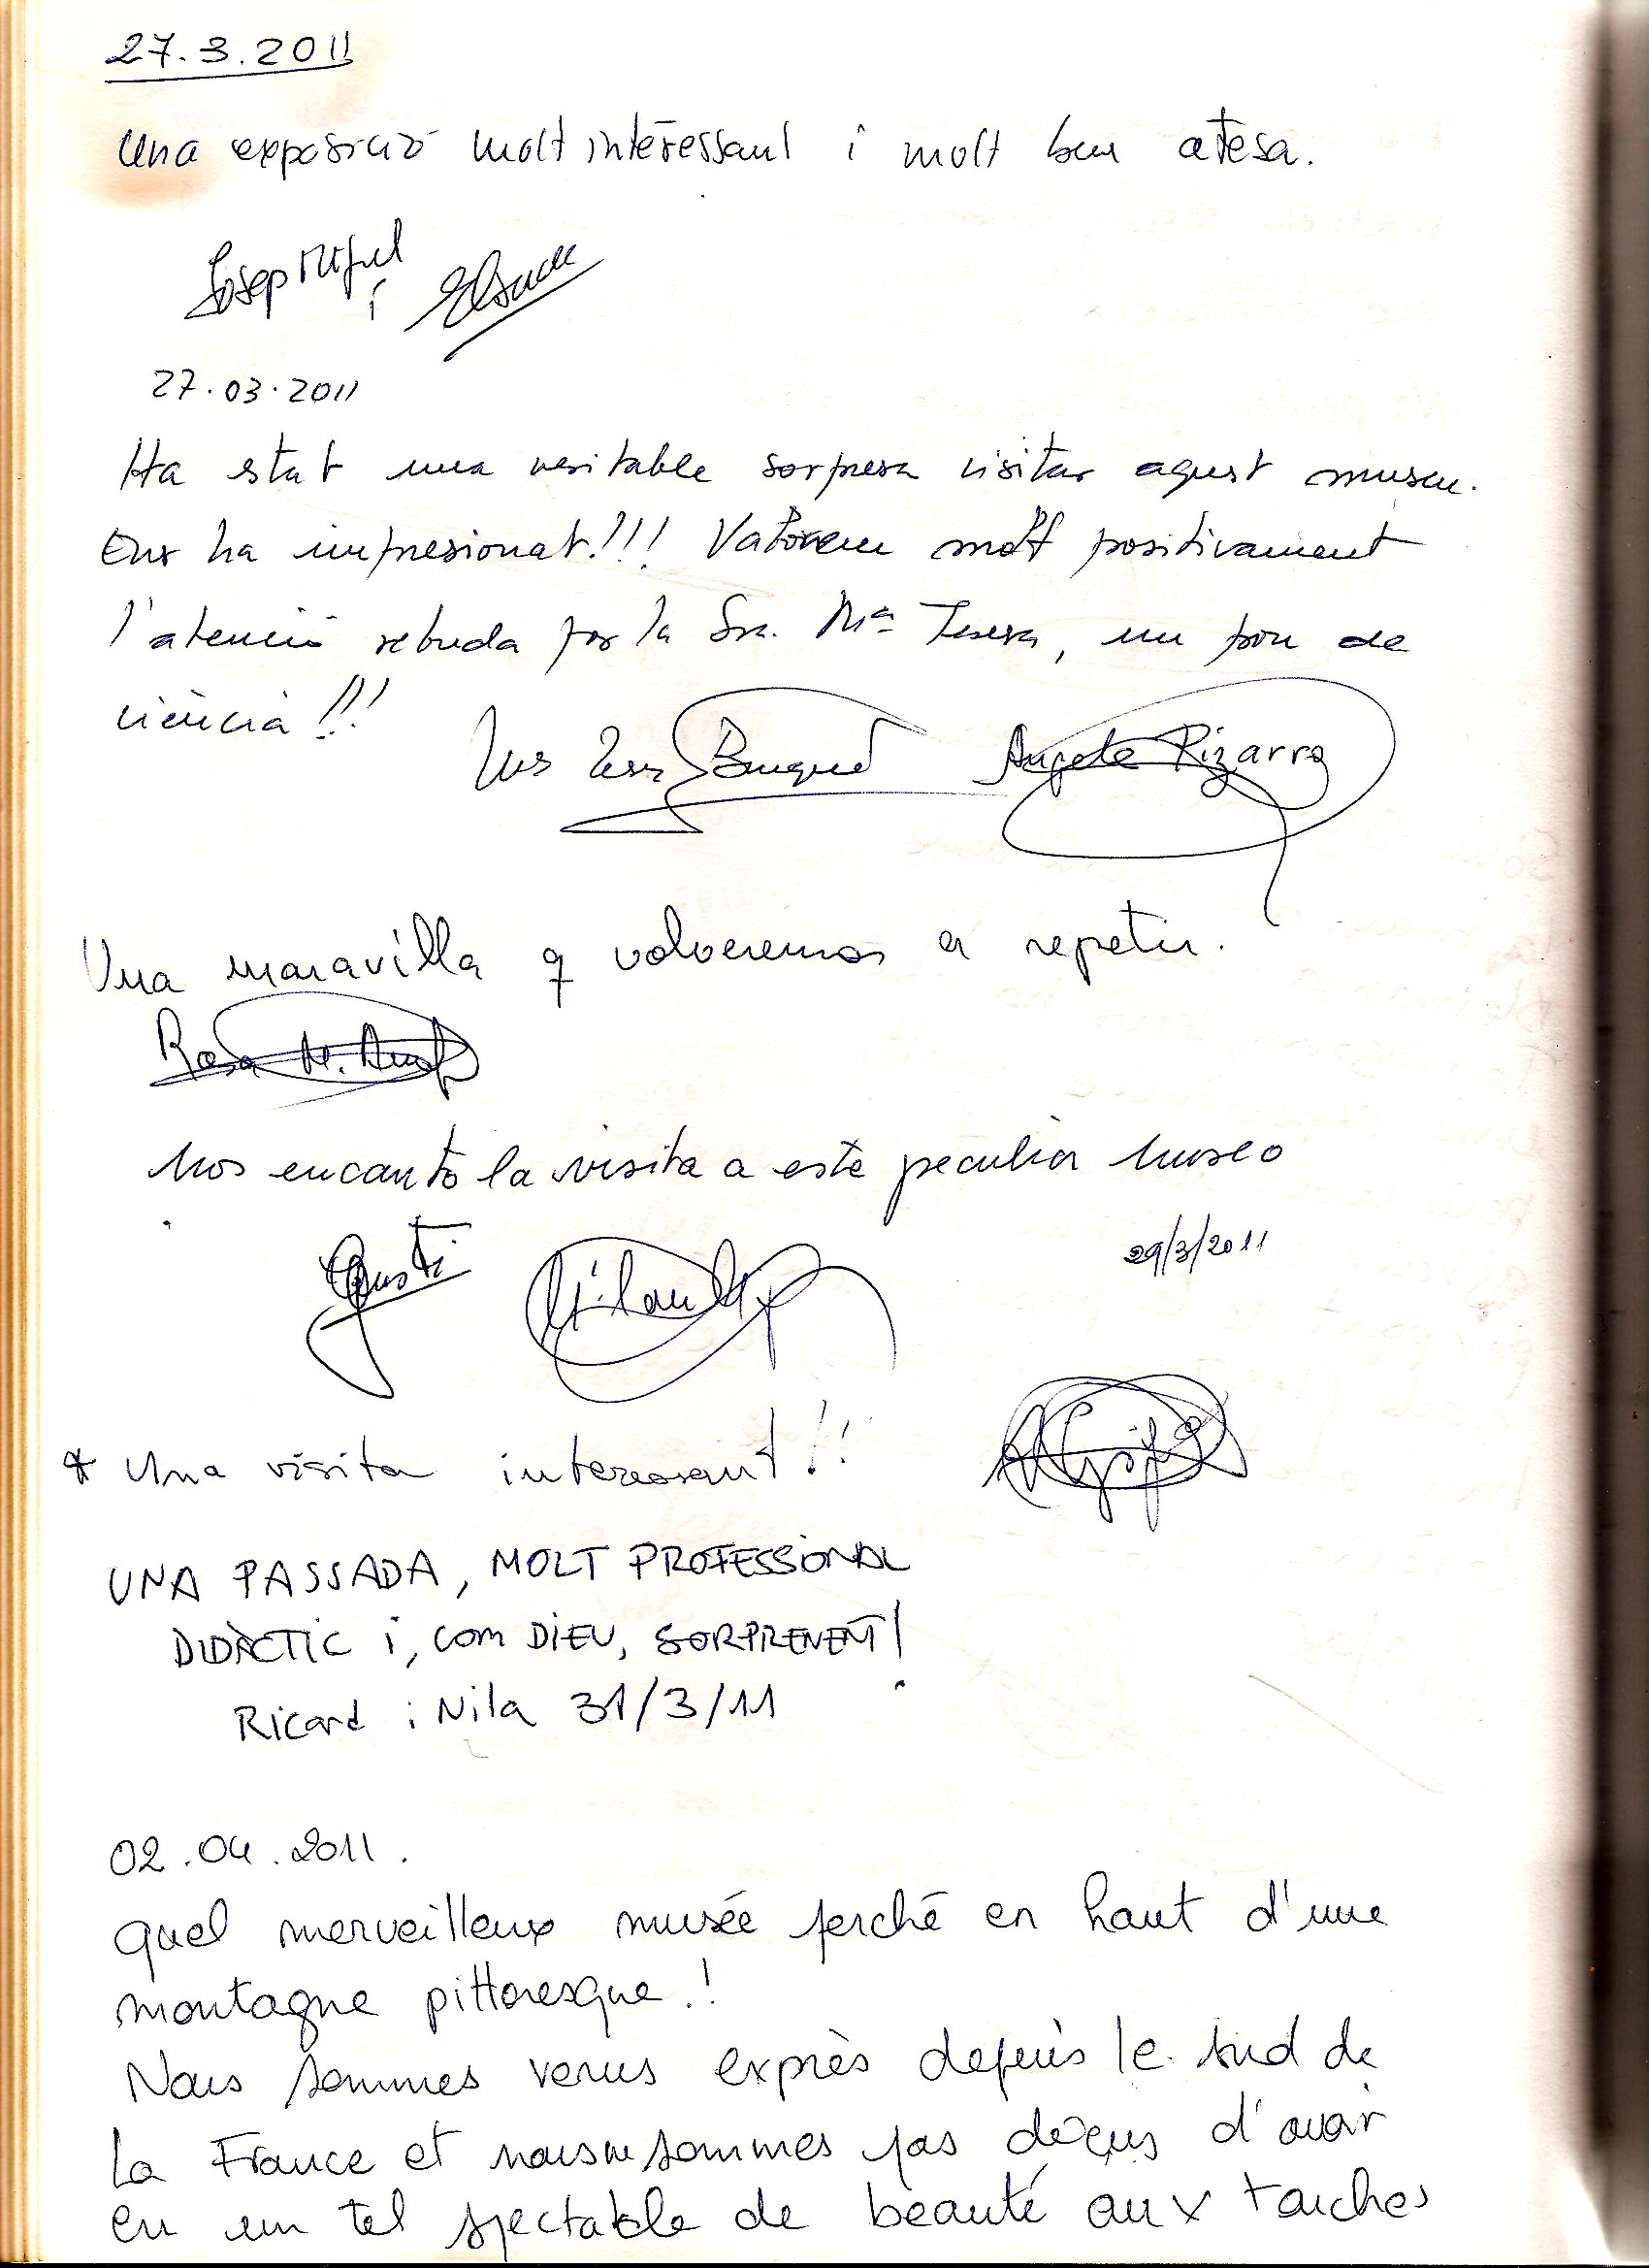 27.3.2011
Una exposició molt interessant i molt ben atesa.
Josep Miquel
i
27.03.2011
Ha estat una veritable sorpresa visitar aquest museu.
Ens ha impresionat!!! Valorem molt positivament
l'atenció rebuda per la Sra. Mª Teresa, un pou de
ciència!!!
Angela Pizarro
Una maravilla q volveremos a repetir.
Rosa M.
Nos encantó la visita a este peculiar museo
29/3/2011
* Una visita interessant!!
UNA PASSADA, MOLT PROFESSIONAL
DIDÀCTIC i, COM DIEU, SORPRENENT!
Ricard i Nila 31/3/11
02.04.2011.
Quel merveilleux musée perché en haut d'une
montagne pittoresque!
Nous sommes venus exprès depuis le sud de
la France et nous ne sommes pas déçus d'avoir
eu un tel spectable de beauté aux